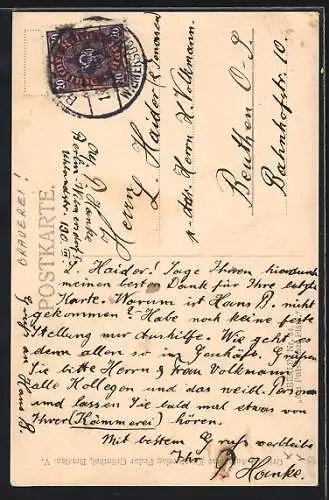 POSTKARTE.
BRAUEREI!
Deutsches Reich
20
20
WILMERSDORF
Abs. P. Hanke
Berlin-Wilmersdorf
Uhlandstr. 130 III
Herrn
L. Haider
p. adr. Herrn H. Volkmann.
Beuthen O. S.
Bahnhofstr. 10.
L. Haider! Sage Ihnen hierdurch
meinen besten Dank für Ihre letzte
Karte. Warum ist Hans B. nicht
gekommen? Habe noch keine feste
Stellung nur Aushilfe. Wie geht es
denn allen so im Geschäft. Grüßen
Sie bitte Herrn & Frau Volkmann
alle Kollegen und das weibl. Personal
und lassen Sie bald mal etwas von
Ihrer (Kämmerei) hören.
Mit bestem Gruß verbleibe
Ihr P. Hanke.
Gruß an Hans B.